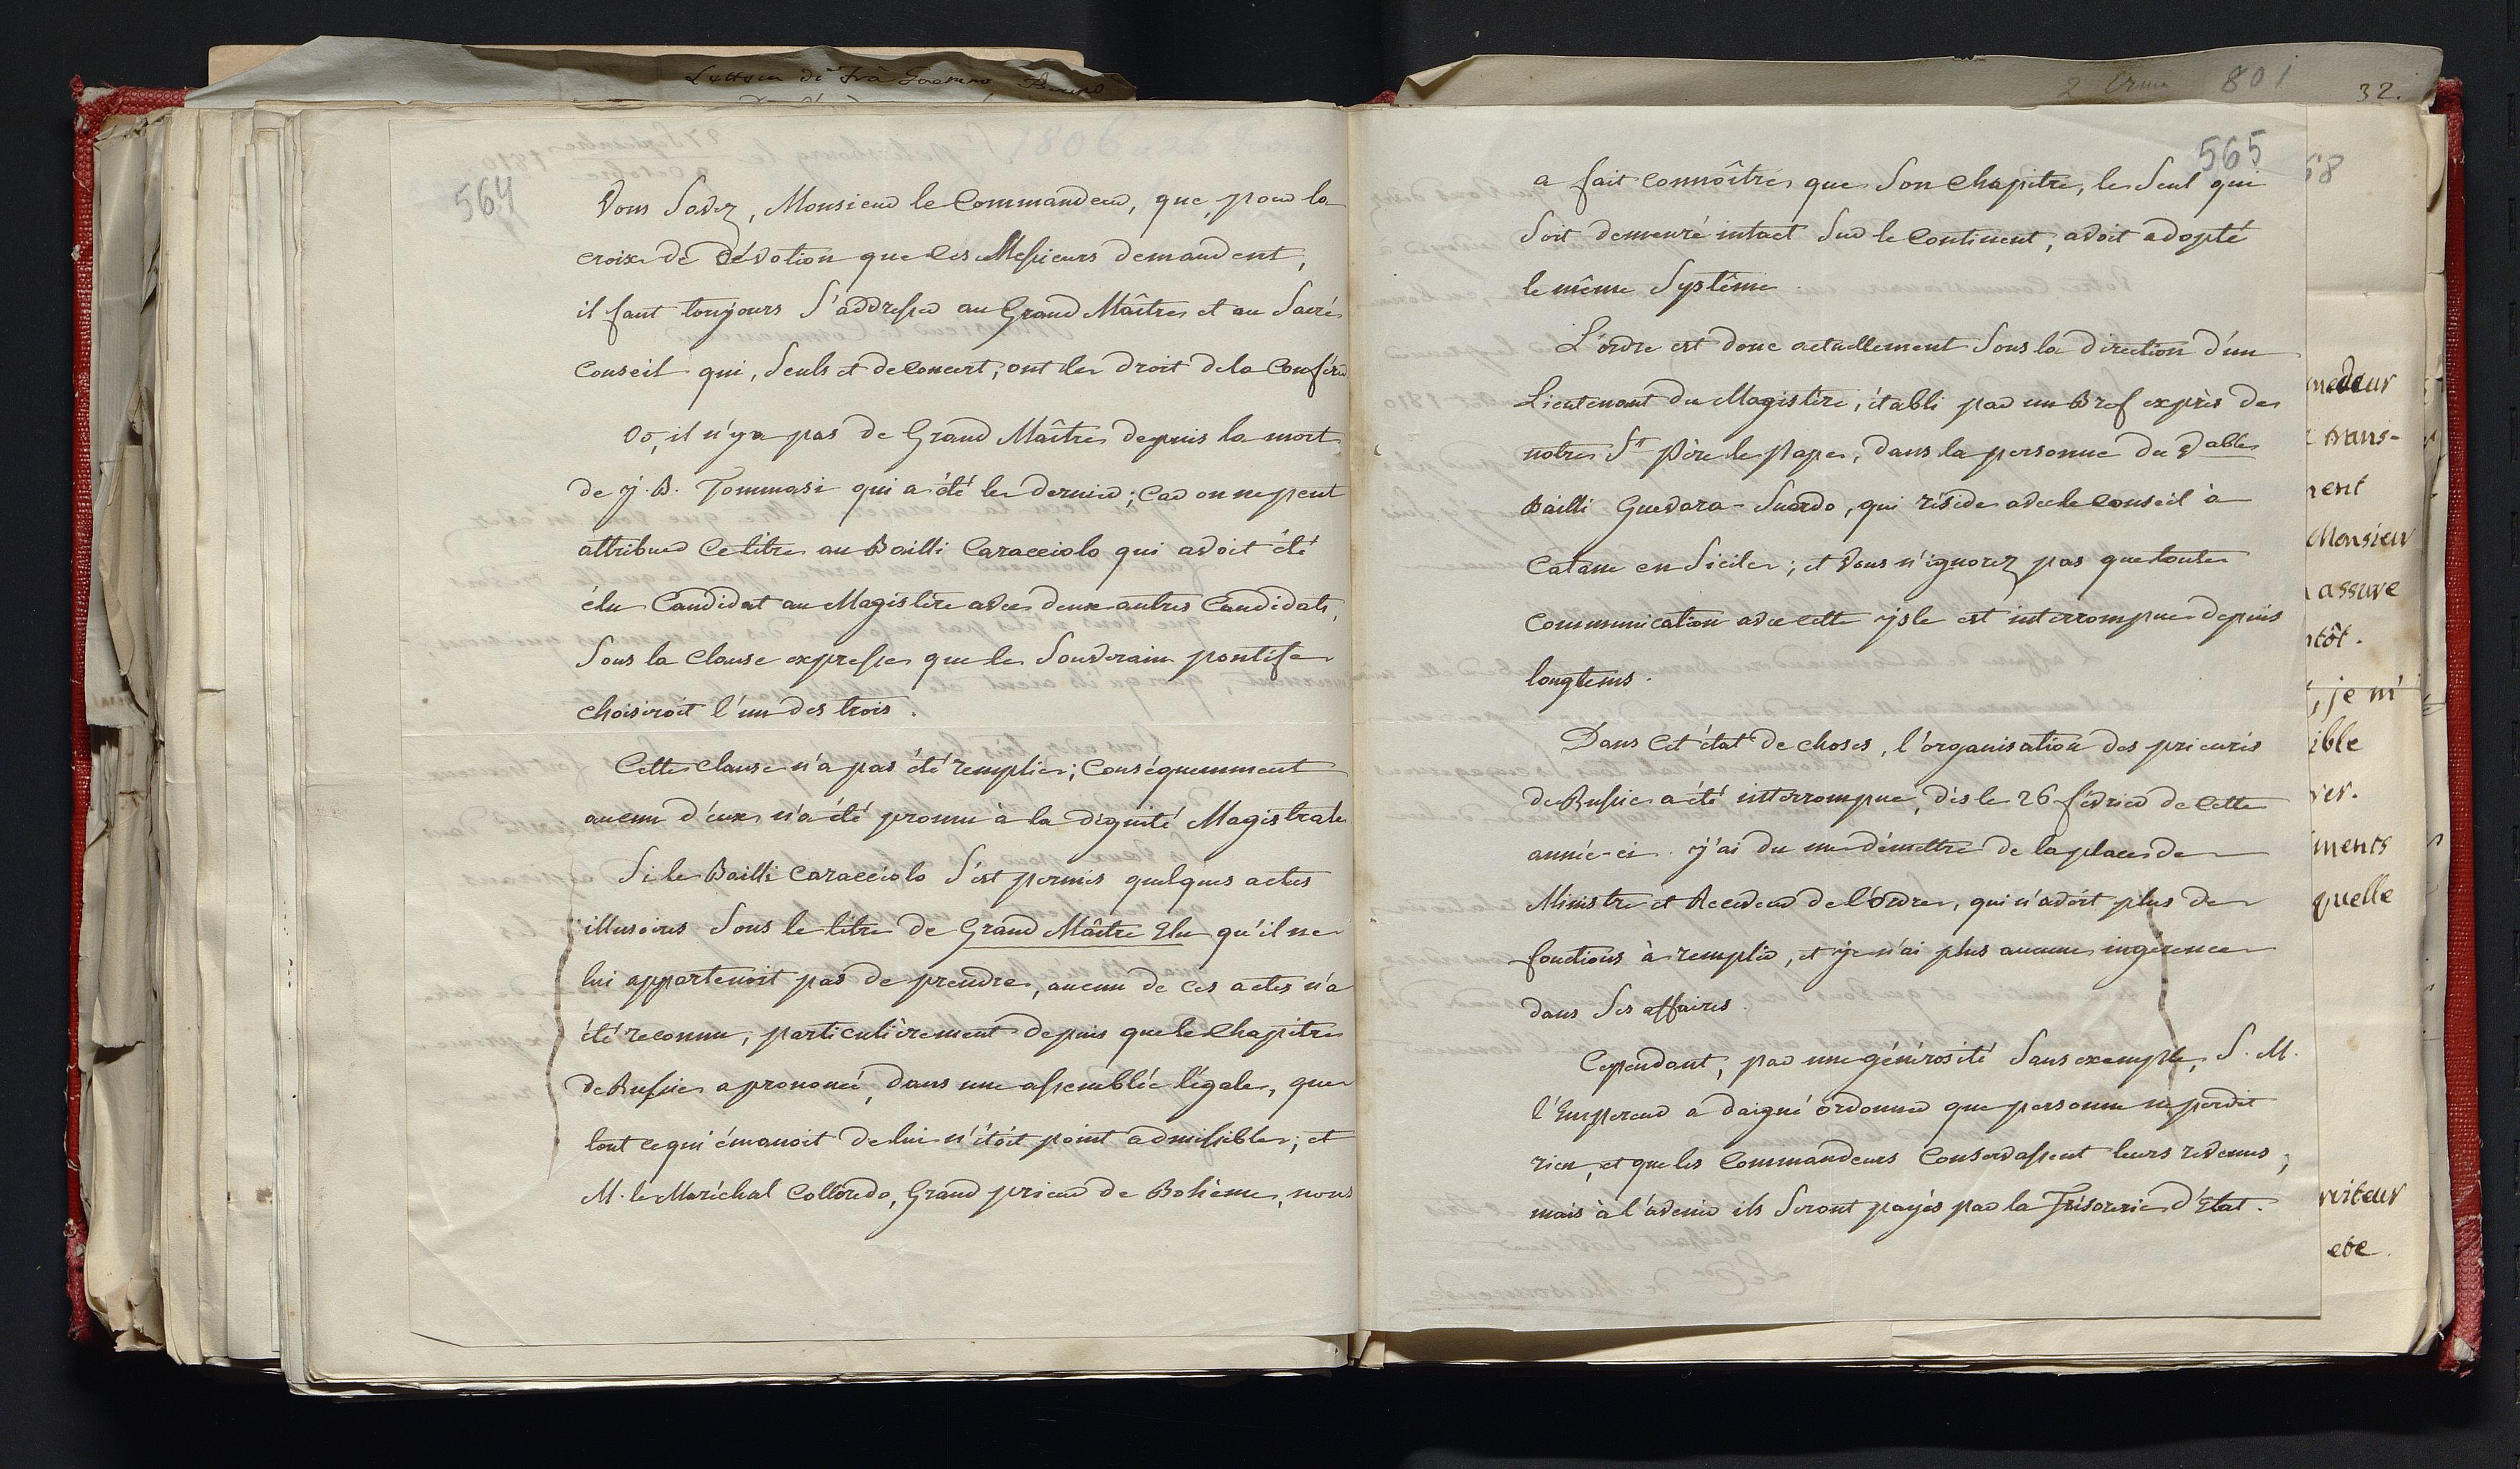 564
Vous savez, Monsieur le Commandeur, que, pour la
croix de dévotion que ces Messieurs demandent,
il faut toujours s'addresser au Grand Maître et au Sacré
Conseil qui, seuls et de concert, ont le droit de la conférer
Or, il n'y a pas de Grand Maître depuis la mort
de J. B. Tommasi qui a été le dernier; car on ne peut
attribuer ce titre au Bailli Caracciolo qui avoit été
élu Candidat au Magistère avec deux autres Candidats,
sous la clause expresse que le Souverain pontife
choisiroit l'un des trois.
Cette clause n'a pas été remplie; conséquemment
aucun d'eux n'a été promu à la dignité Magistrale
Si le Bailli Caracciolo s'est permis quelques actes
illusoires sous le titre de Grand Maître Elu qu'il ne
lui appartenoit pas de prendre, aucun de ces actes n'a
été reconnu, particulièrement depuis que le Chapitre
de Russie a prononcé, dans une assemblée légale, que
tout ce qui émanoit de lui n'étoit point admissible; et
M. le Maréchal Colloredo, Grand prieur de Bohème, nous
2 801
32.
565
68
a fait connoître que son chapitre, le seul qui
soit demeuré intact sur le Continent, avoit adopté
le même Systême.
L'ordre est donc actuellement sous la direction d'un
Lieutenant du Magistère, établi par un Bref exprès de
notre St Père le Pape, dans la personne du Vable
Bailli Guevara-Suardo, qui réside avec le conseil à
Catane en Sicile; et vous n'ignorez pas que toute
communication avec cette isle est interrompue depuis
longtems.
Dans cet état de choses, l'organisation des prieurés
de Russie a été interrompue, dès le 26 février de cette
année-ci. j'ai du me démettre de la place de
Ministre et Receveur de l'Ordre, qui n'avoit plus de
fonctions à remplir, et je n'ai plus aucune ingérence
dans ses affaires.
Cependant, par une générosité sans exemple, S. M.
l'Empereur a daigné ordonner que personne ne perdit
rien, et que les Commandeurs conservassent leurs revenus;
mais à l'avenir ils seront payés par la Trésorerie d'Etat.
medeur
trans-
nent
Monsieur
assure
ntôt.
, je m'
ible
ier.
iments
quelle
rviteur
ete.